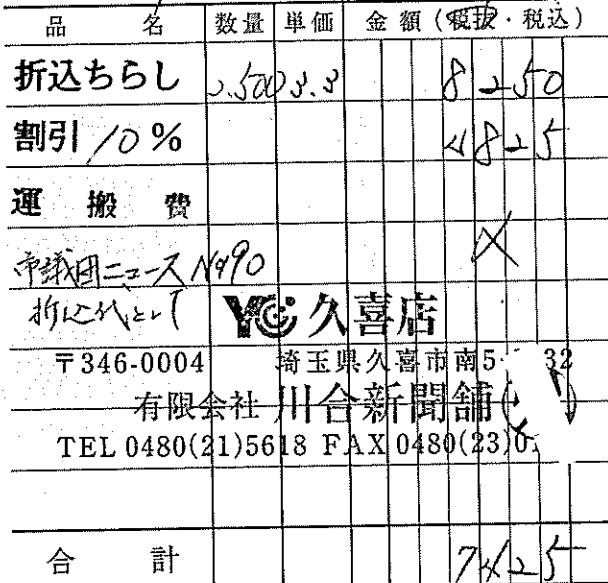 品 名 数量 単価 金額(税抜・税込)
折込ちらし 2.500 3.3 8250
割引 10% ▲825
運搬費
市議団ニュース No90
折込代として
YC 久喜店
〒346-0004 埼玉県久喜市南5 32
有限会社 川合新聞舗
TEL 0480(21)5618 FAX 0480(23)0
合計 7425